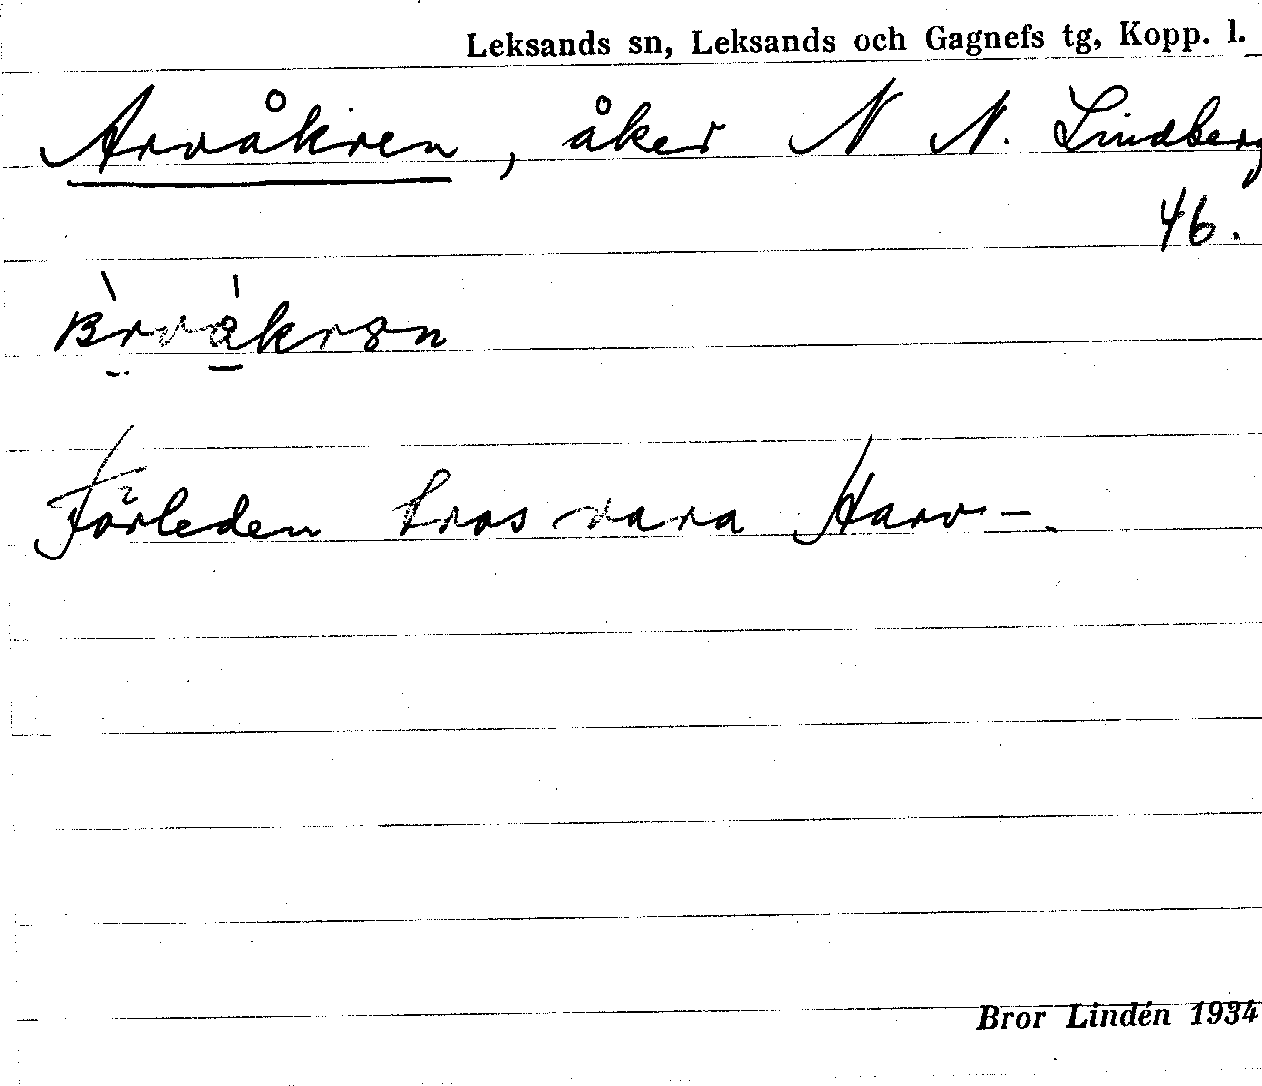 Leksands sn, Leksands och Gagnefs tg, Kopp. l.
Arvåkren, åker N N. Lindberg
46.
Förleden tros vara Harv-.
Bror Lindén 1934